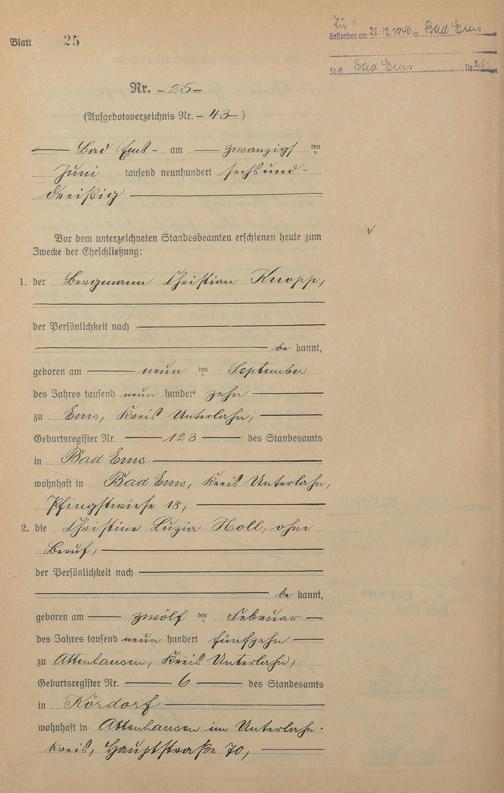 Blatt 25
Zu 1
Gestorben am 28.12.1946 in Bad Ems
St.A. Bad Ems Nr. 251
Nr. 25
(Aufgebotsverzeichnis Nr. 43)
Bad Ems am zwanzigsten
Juni tausend neunhundert sechsund-
dreißig
Vor dem unterzeichneten Standesbeamten erschienen heute zum
Zwecke der Eheschließung:
1. der Bergmann Christian Knopp,
der Persönlichkeit nach
be kannt,
geboren am neun ten September
des Jahres tausend neun hundert zehn
zu Ems, Kreis Unterlahn,
Geburtsregister Nr. 123 des Standesamts
in Bad Ems
wohnhaft in Bad Ems, Kreis Unterlahn,
Pfingstwiese 18,
2. die Christine Luzia Noll, ohne
Beruf,
der Persönlichkeit nach
be kannt,
geboren am zwölf ten Februar
des Jahres tausend neun hundert fünfzehn
zu Attenhausen, Kreis Unterlahn,
Geburtsregister Nr. 6 des Standesamts
in Kördorf
wohnhaft in Attenhausen im Unterlahn-
kreis, Hauptstraße 70,